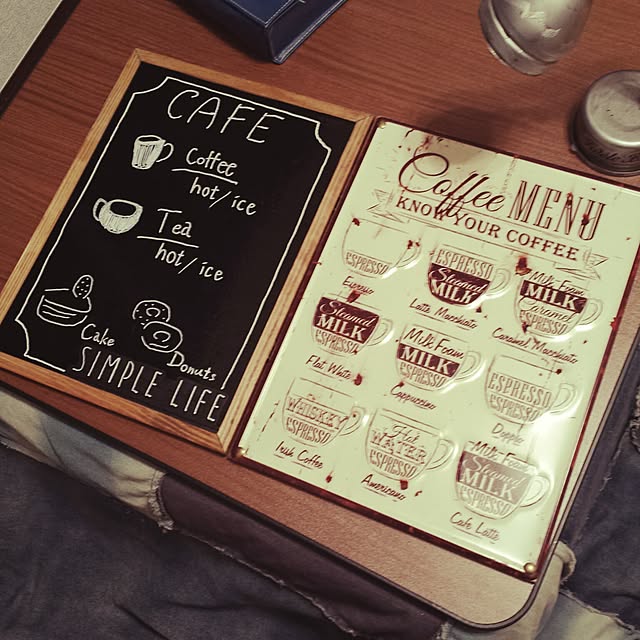 CAFE
Coffee
hot/ice
Tea
hot/ice
Cake
Donuts
SIMPLE LIFE
Coffee MENU
KNOW YOUR COFFEE
ESPRESSO
Espresso
ESPRESSO
Steamed
MILK
Latte Macchiato
Milk Foam
MILK
Caramel
ESPRESSO
Caramel Macchiato
Steamed
MILK
ESPRESSO
Flat White
Milk Foam
MILK
ESPRESSO
Cappuccino
ESPRESSO
ESPRESSO
Doppio
WHISKEY
ESPRESSO
Irish Coffee
Hot
WATER
ESPRESSO
Americano
Milk Foam
Steamed
MILK
ESPRESSO
Cafe Latte